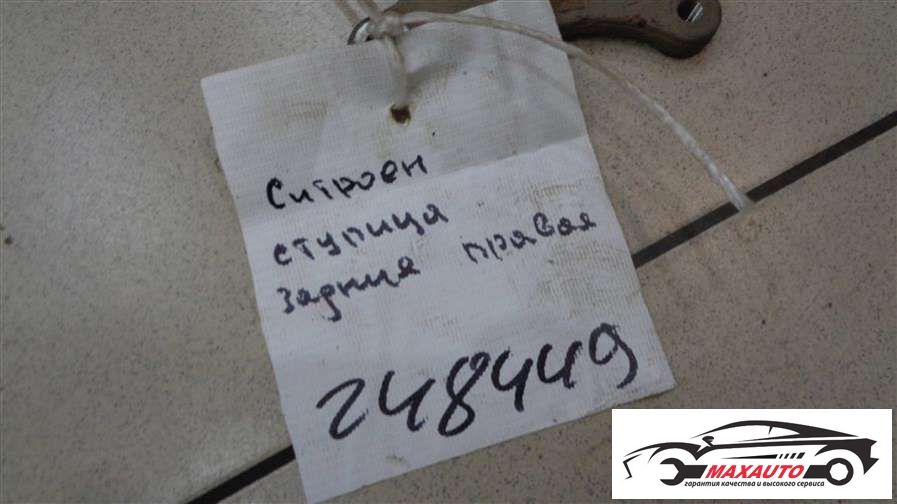 Ситроен
ступица
задняя правая
248449
MAXAUTO
гарантия качества и высокого сервиса